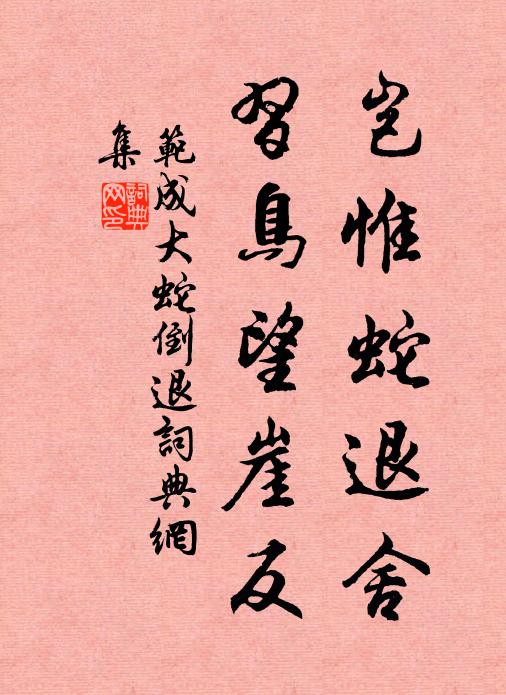 豈惟蛇退舍
習鳥望崖反
範成大蛇倒退詞典網
集
詞典
网印